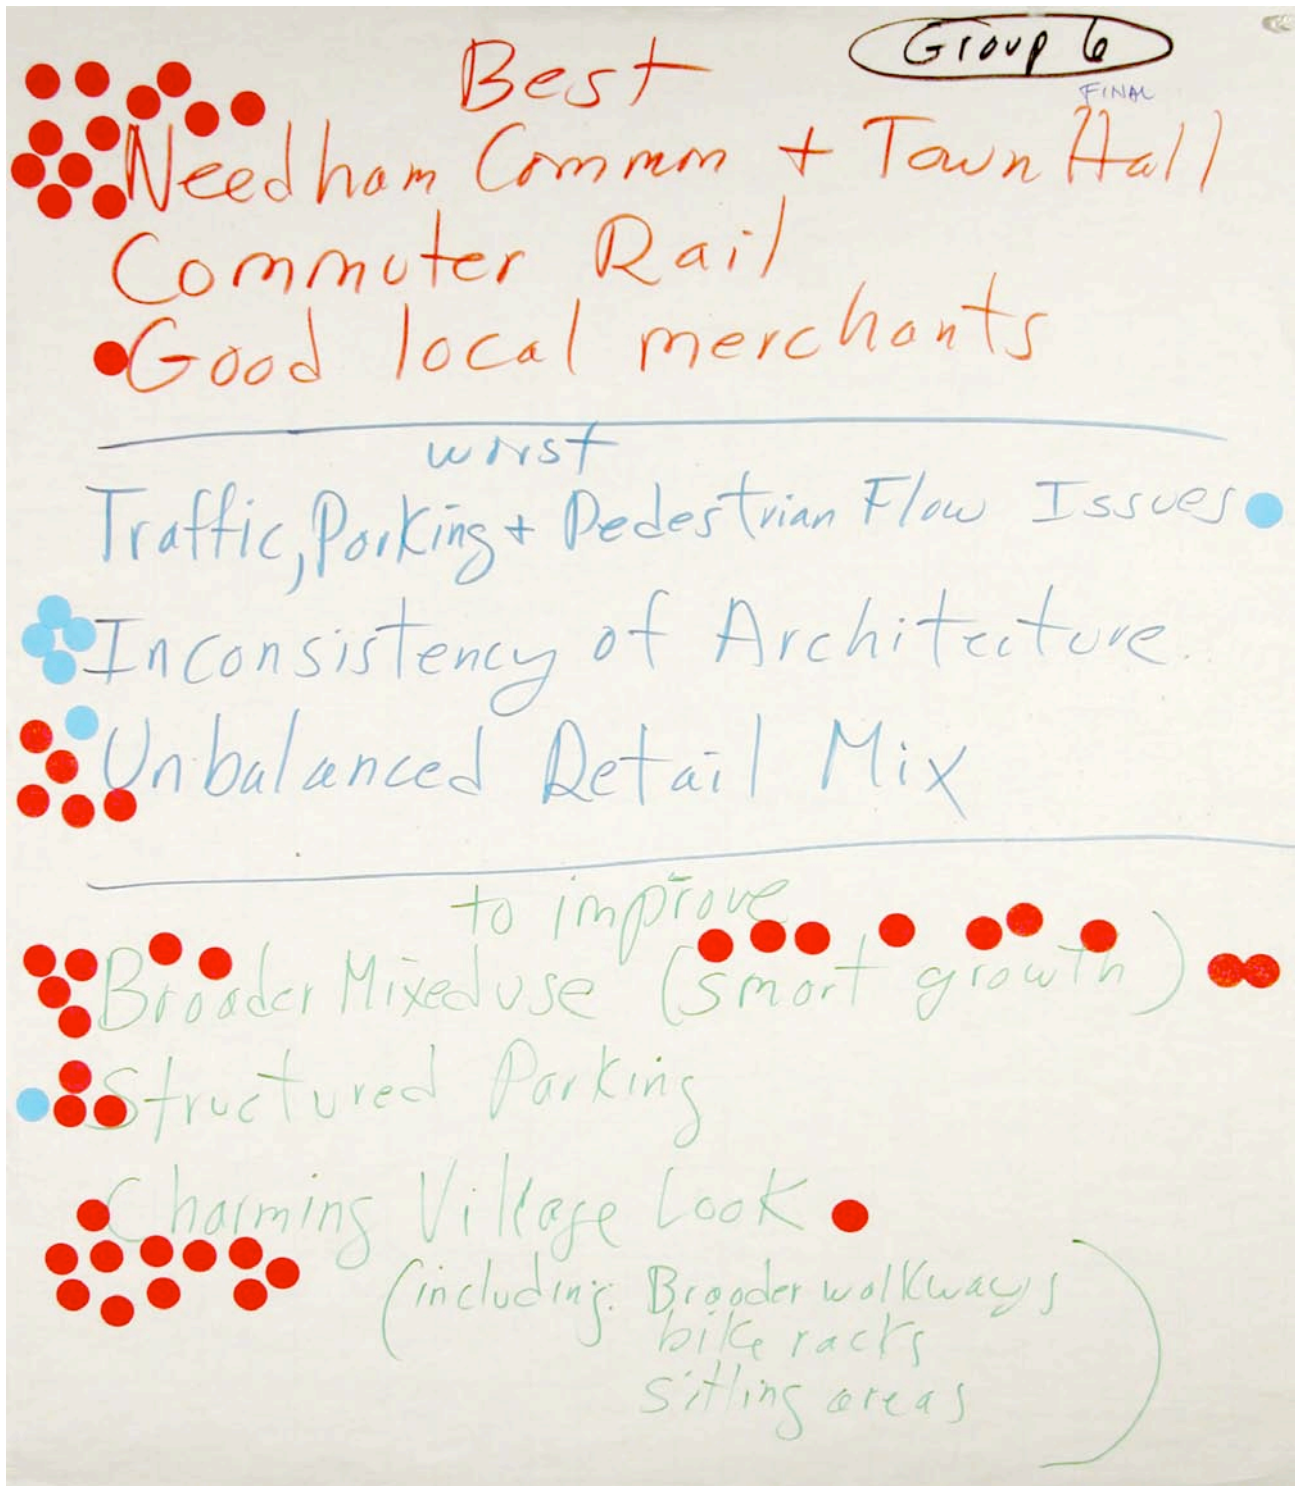 Group 6
FINAL
Best
Needham Common + Town Hall
Commuter Rail
Good local merchants
worst
Traffic, Parking + Pedestrian Flow Issues
Inconsistency of Architecture
Unbalanced Retail Mix
to improve
Broader Mixed use (smart growth)
Structured Parking
Charming Village Look
(including: Broader walkways
bike racks
sitting areas)